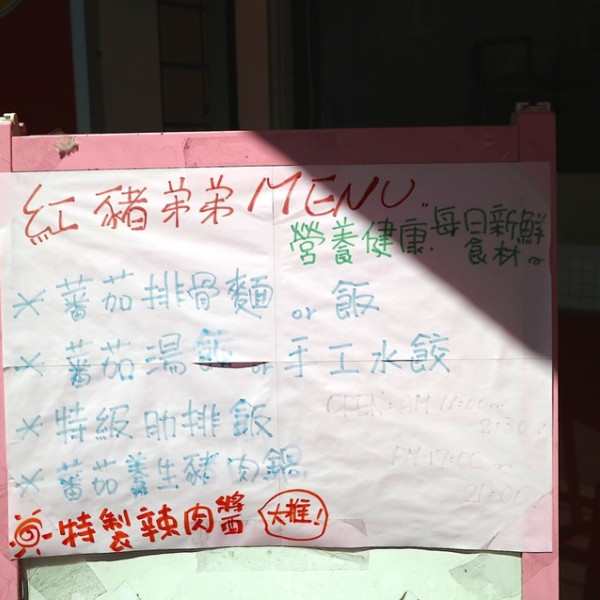 紅豬弟弟 MENU
營養健康. "每日新鮮
食材~
* 蕃茄排骨麵 or 飯
* 蕃茄湯飯 or 手工水餃
* 特級肋排飯
* 蕃茄養生豬肉鍋
OPEN: AM 11:00~
2:30
PM 17:00~
21:00
特製辣肉醬 大推!